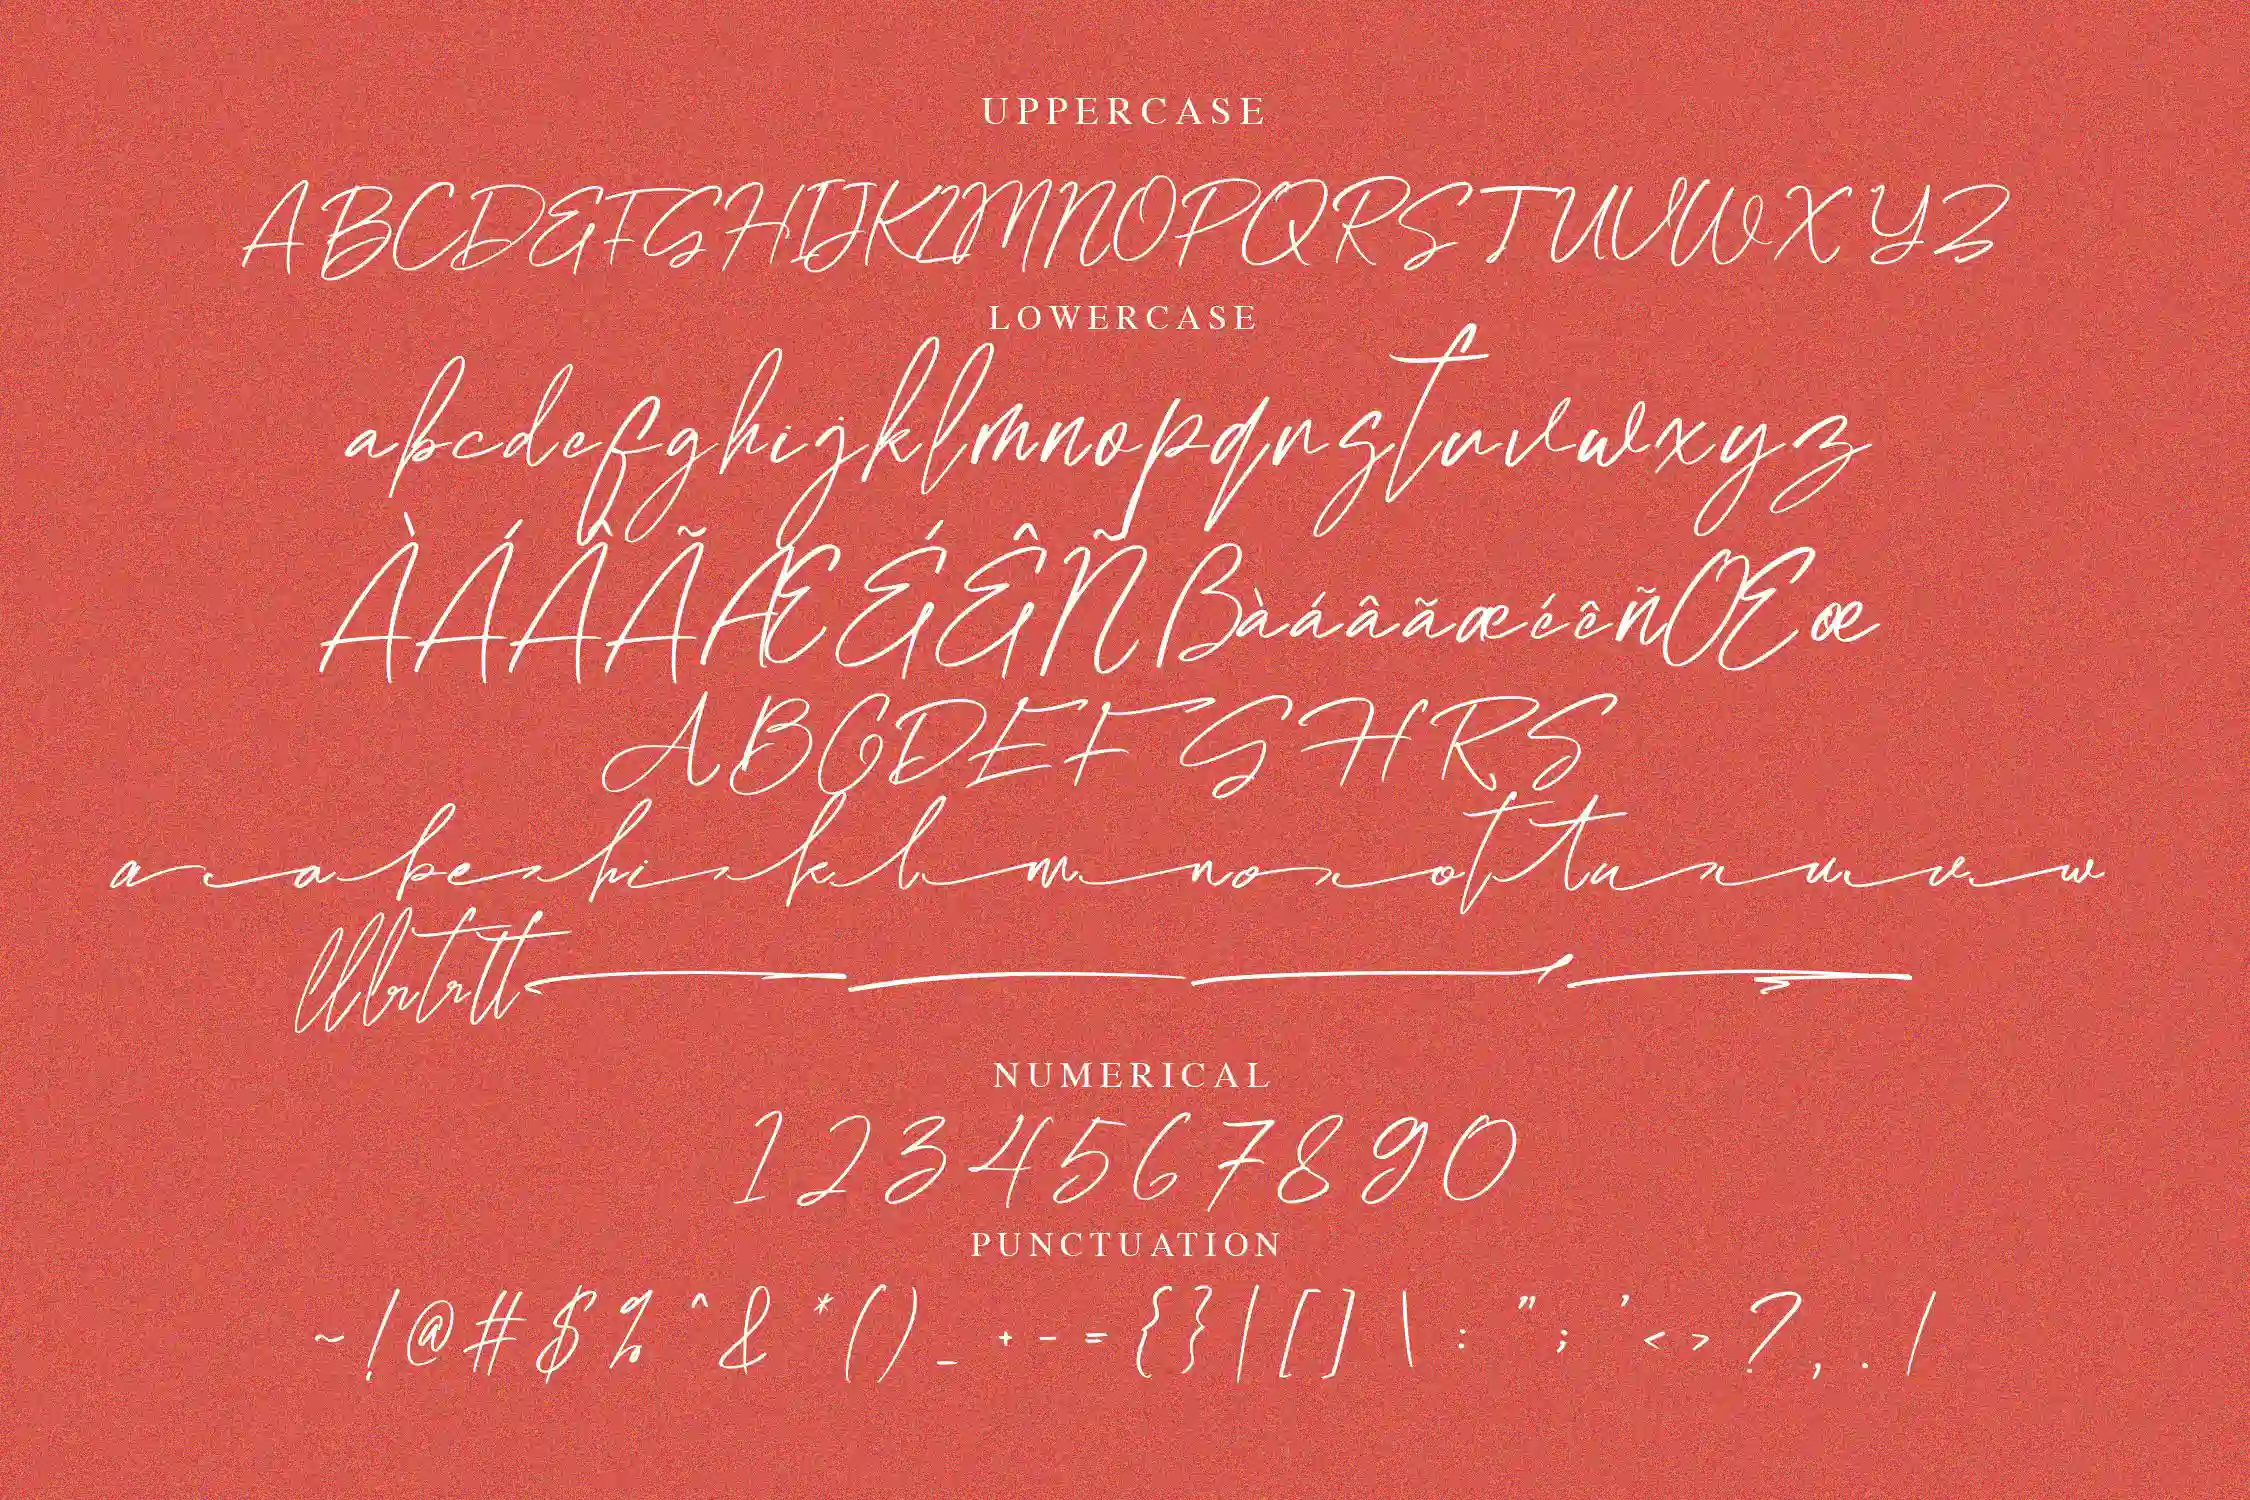 UPPERCASE
ABCDEFGHIJKLMNOPQRSTUVWXYZ
LOWERCASE
abcdefghijklmnopqrstuvwxyz
ÀÁÂÃÆÉÊÑßàáâãæéêñŒœ
ABCDEFGHRS
a a be hi k l m no ot tu u v w
ll lr tr tt
NUMERICAL
1234567890
PUNCTUATION
~!@#$%^&*()_+-={}|[]\:";'<>?,./